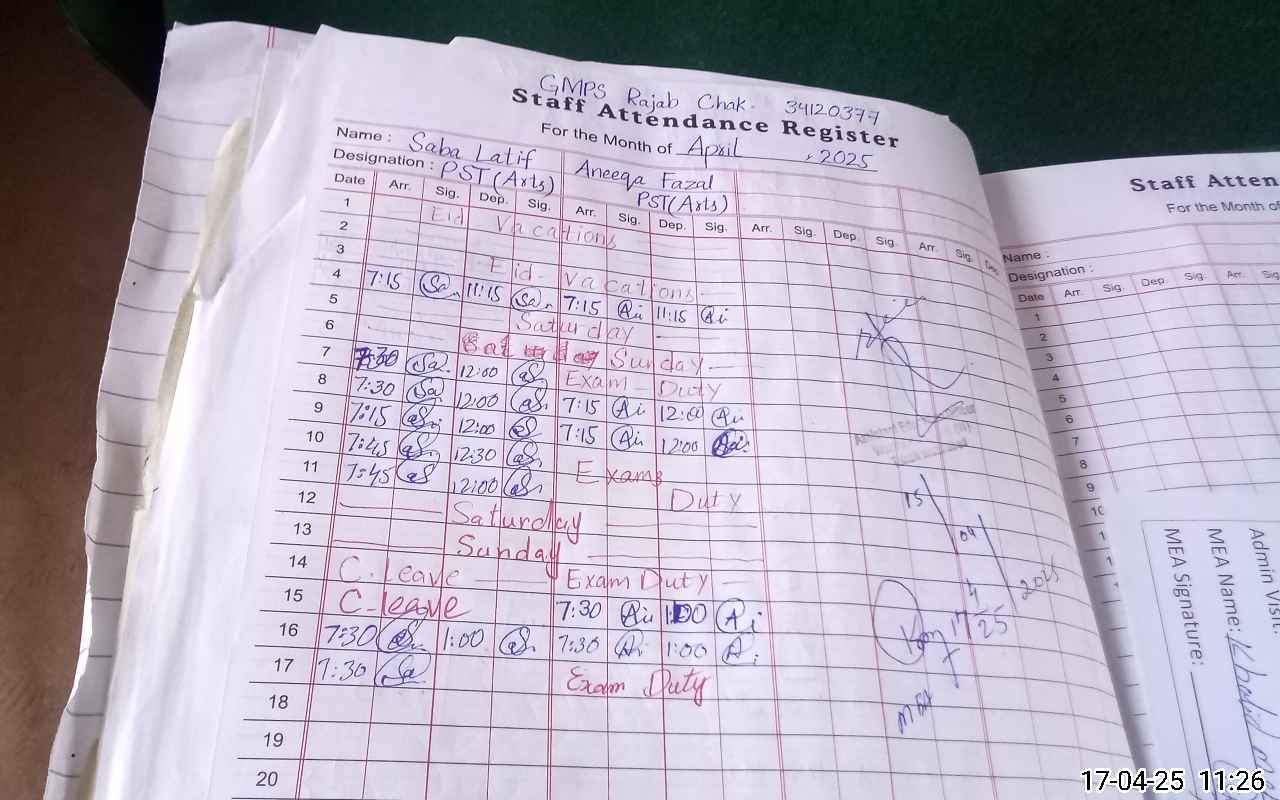 GMPS Rajab Chak. 34120377
Staff Attendance Register
For the Month of April, 2025
Name : Saba Latif Aneeqa Fazal
Designation : PST(Arts) PST(Arts)
Date Arr. Sig. Dep. Sig. Arr. Sig. Dep. Sig. Arr. Sig. Dep. Sig. Arr. Sig. Dep.
1 Eid Vacations
2
3 Eid- Vacations
4 7:15 Sa 11:15 Sa 7:15 Ai 11:15 Ai
5 Saturday
6 Sunday
7 7:30 Sa 12:00 Exam Duty
8 7:30 Sa 12:00 7:15 Ai 12:00 Ai
9 7:15 12:00 7:15 Ai 12:00 Ai
10 7:45 12:30 Exams
11 7:45 12:00 Duty
12 Saturday
13 Sunday
14 C. Leave Exam Duty
15 C-leave 7:30 Ai 1:00 Ai
16 7:30 1:00 7:30 Ai 1:00 Ai
17 7:30 Sa Exam Duty
18
19
20
15/04/2025
17/4/25
MEA
Staff Atten
For the Month of
Name :
Designation :
Date Arr. Sig. Dep. Sig. Arr. Sig.
1
2
3
4
5
6
7
8
9
10
Admin Visit
MEA Name: Khalid
MEA Signature:
17-04-25 11:26